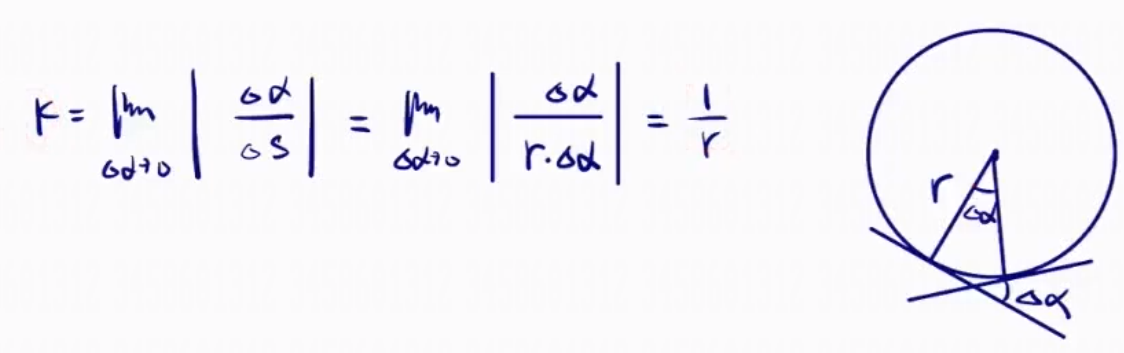 K = lim Δα→0 | Δα / ΔS | = lim Δα→0 | Δα / r·Δα | = 1 / r
r
Δα
Δα